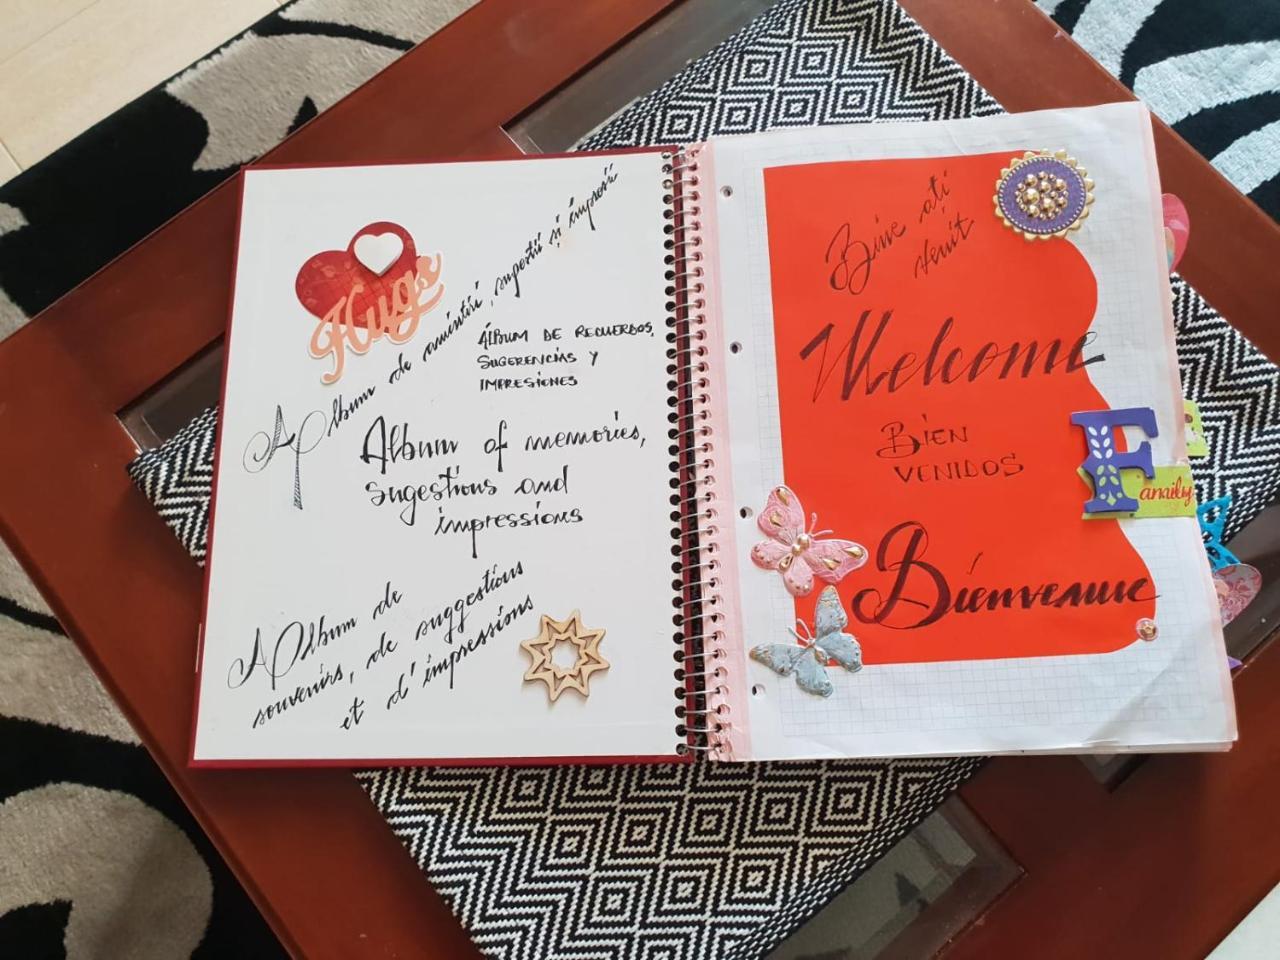 Hugs
Album de amintiri, sugestii și impresii
ÁLBUM DE RECUERDOS,
SUGERENCIAS Y
IMPRESIONES
Album of memories,
sugestions and
impressions
Album de
souvenirs, de suggestions
et d'impressions
Bine ați
venit
Welcome
BIEN
VENIDOS
Bienvenue
Family